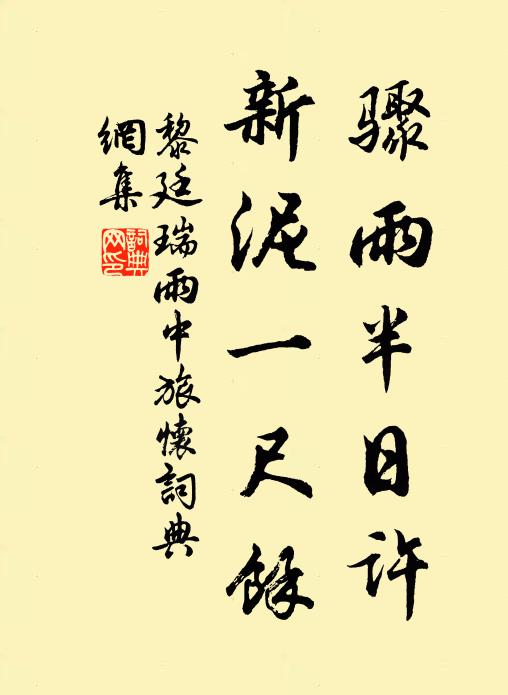 驟雨半日許
新泥一尺餘
黎廷瑞雨中旅懷詞典
網集
詞典
网印